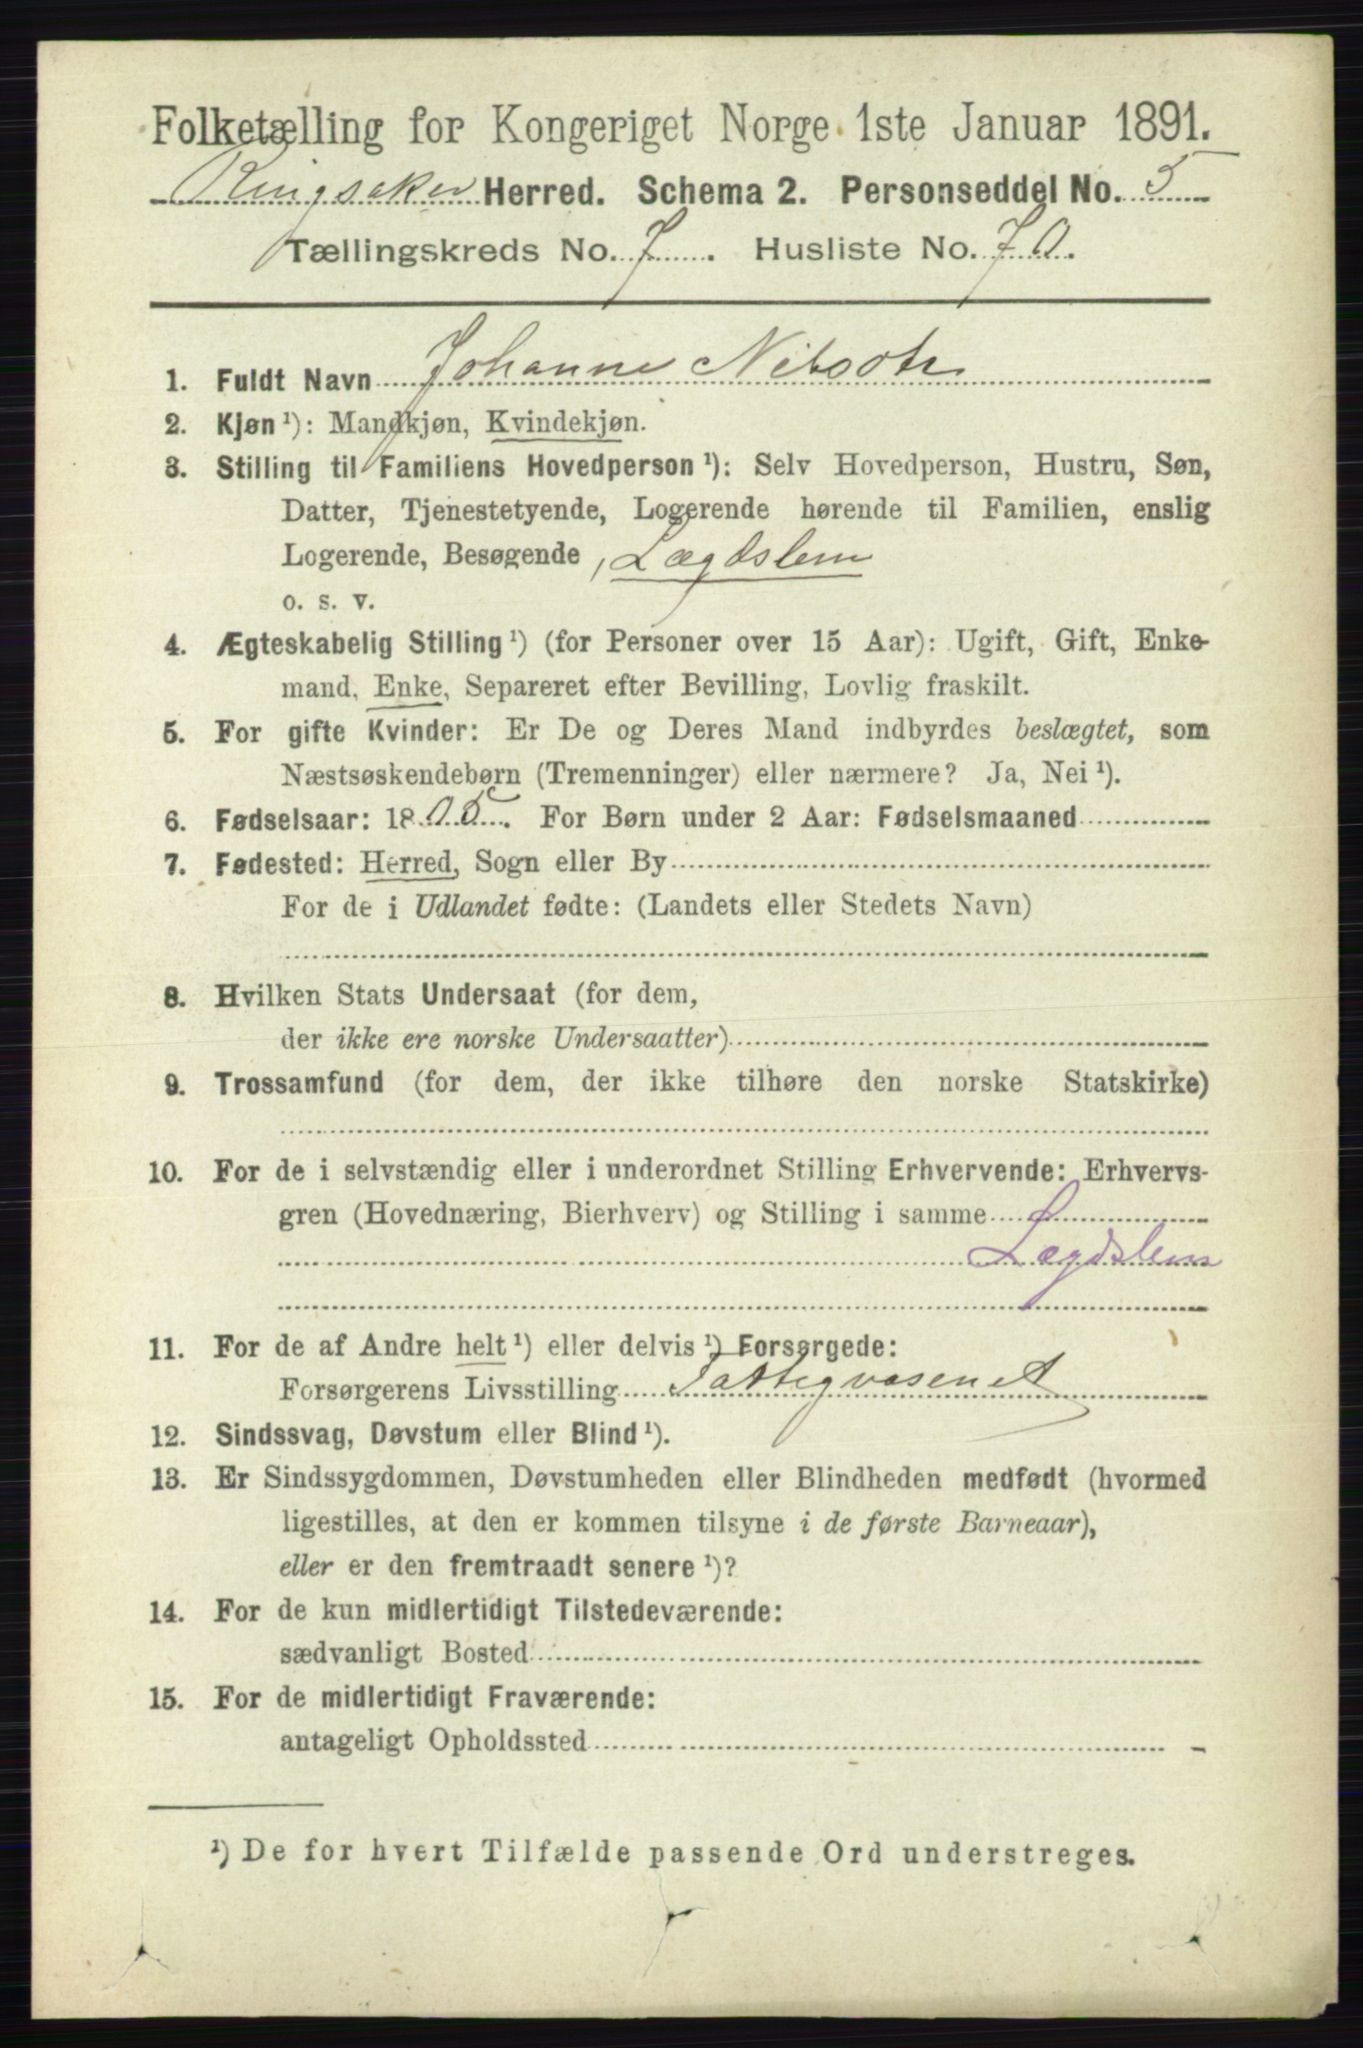 Folketælling for Kongeriget Norge 1ste Januar 1891.
Ringsaker Herred. Schema 2. Personseddel No. 5
Tællingskreds No. 7. Husliste No. 70.
1. Fuldt Navn Johanne Nilsdtr
2. Kjøn ¹): Mandkjøn, Kvindekjøn.
3. Stilling til Familiens Hovedperson ¹): Selv Hovedperson, Hustru, Søn,
Datter, Tjenestetyende, Logerende hørende til Familien, enslig
Logerende, Besøgende, Lægdslem
o. s. v.
4. Ægteskabelig Stilling ¹) (for Personer over 15 Aar): Ugift, Gift, Enke-
mand, Enke, Separeret efter Bevilling, Lovlig fraskilt.
5. For gifte Kvinder: Er De og Deres Mand indbyrdes beslægtet, som
Næstsøskendebørn (Tremenninger) eller nærmere? Ja, Nei ¹).
6. Fødselsaar: 1805. For Børn under 2 Aar: Fødselsmaaned
7. Fødested: Herred, Sogn eller By
For de i Udlandet fødte: (Landets eller Stedets Navn)
8. Hvilken Stats Undersaat (for dem,
der ikke ere norske Undersaatter)
9. Trossamfund (for dem, der ikke tilhøre den norske Statskirke)
10. For de i selvstændig eller i underordnet Stilling Erhvervende: Erhvervs-
gren (Hovednæring, Bierhverv) og Stilling i samme
Lægdslem
11. For de af Andre helt ¹) eller delvis ¹) Forsørgede:
Forsørgerens Livsstilling Fattigvæsenet
12. Sindssvag, Døvstum eller Blind ¹).
13. Er Sindssygdommen, Døvstumheden eller Blindheden medfødt (hvormed
ligestilles, at den er kommen tilsyne i de første Barneaar),
eller er den fremtraadt senere ¹)?
14. For de kun midlertidigt Tilstedeværende:
sædvanligt Bosted
15. For de midlertidigt Fraværende:
antageligt Opholdssted
¹) De for hvert Tilfælde passende Ord understreges.